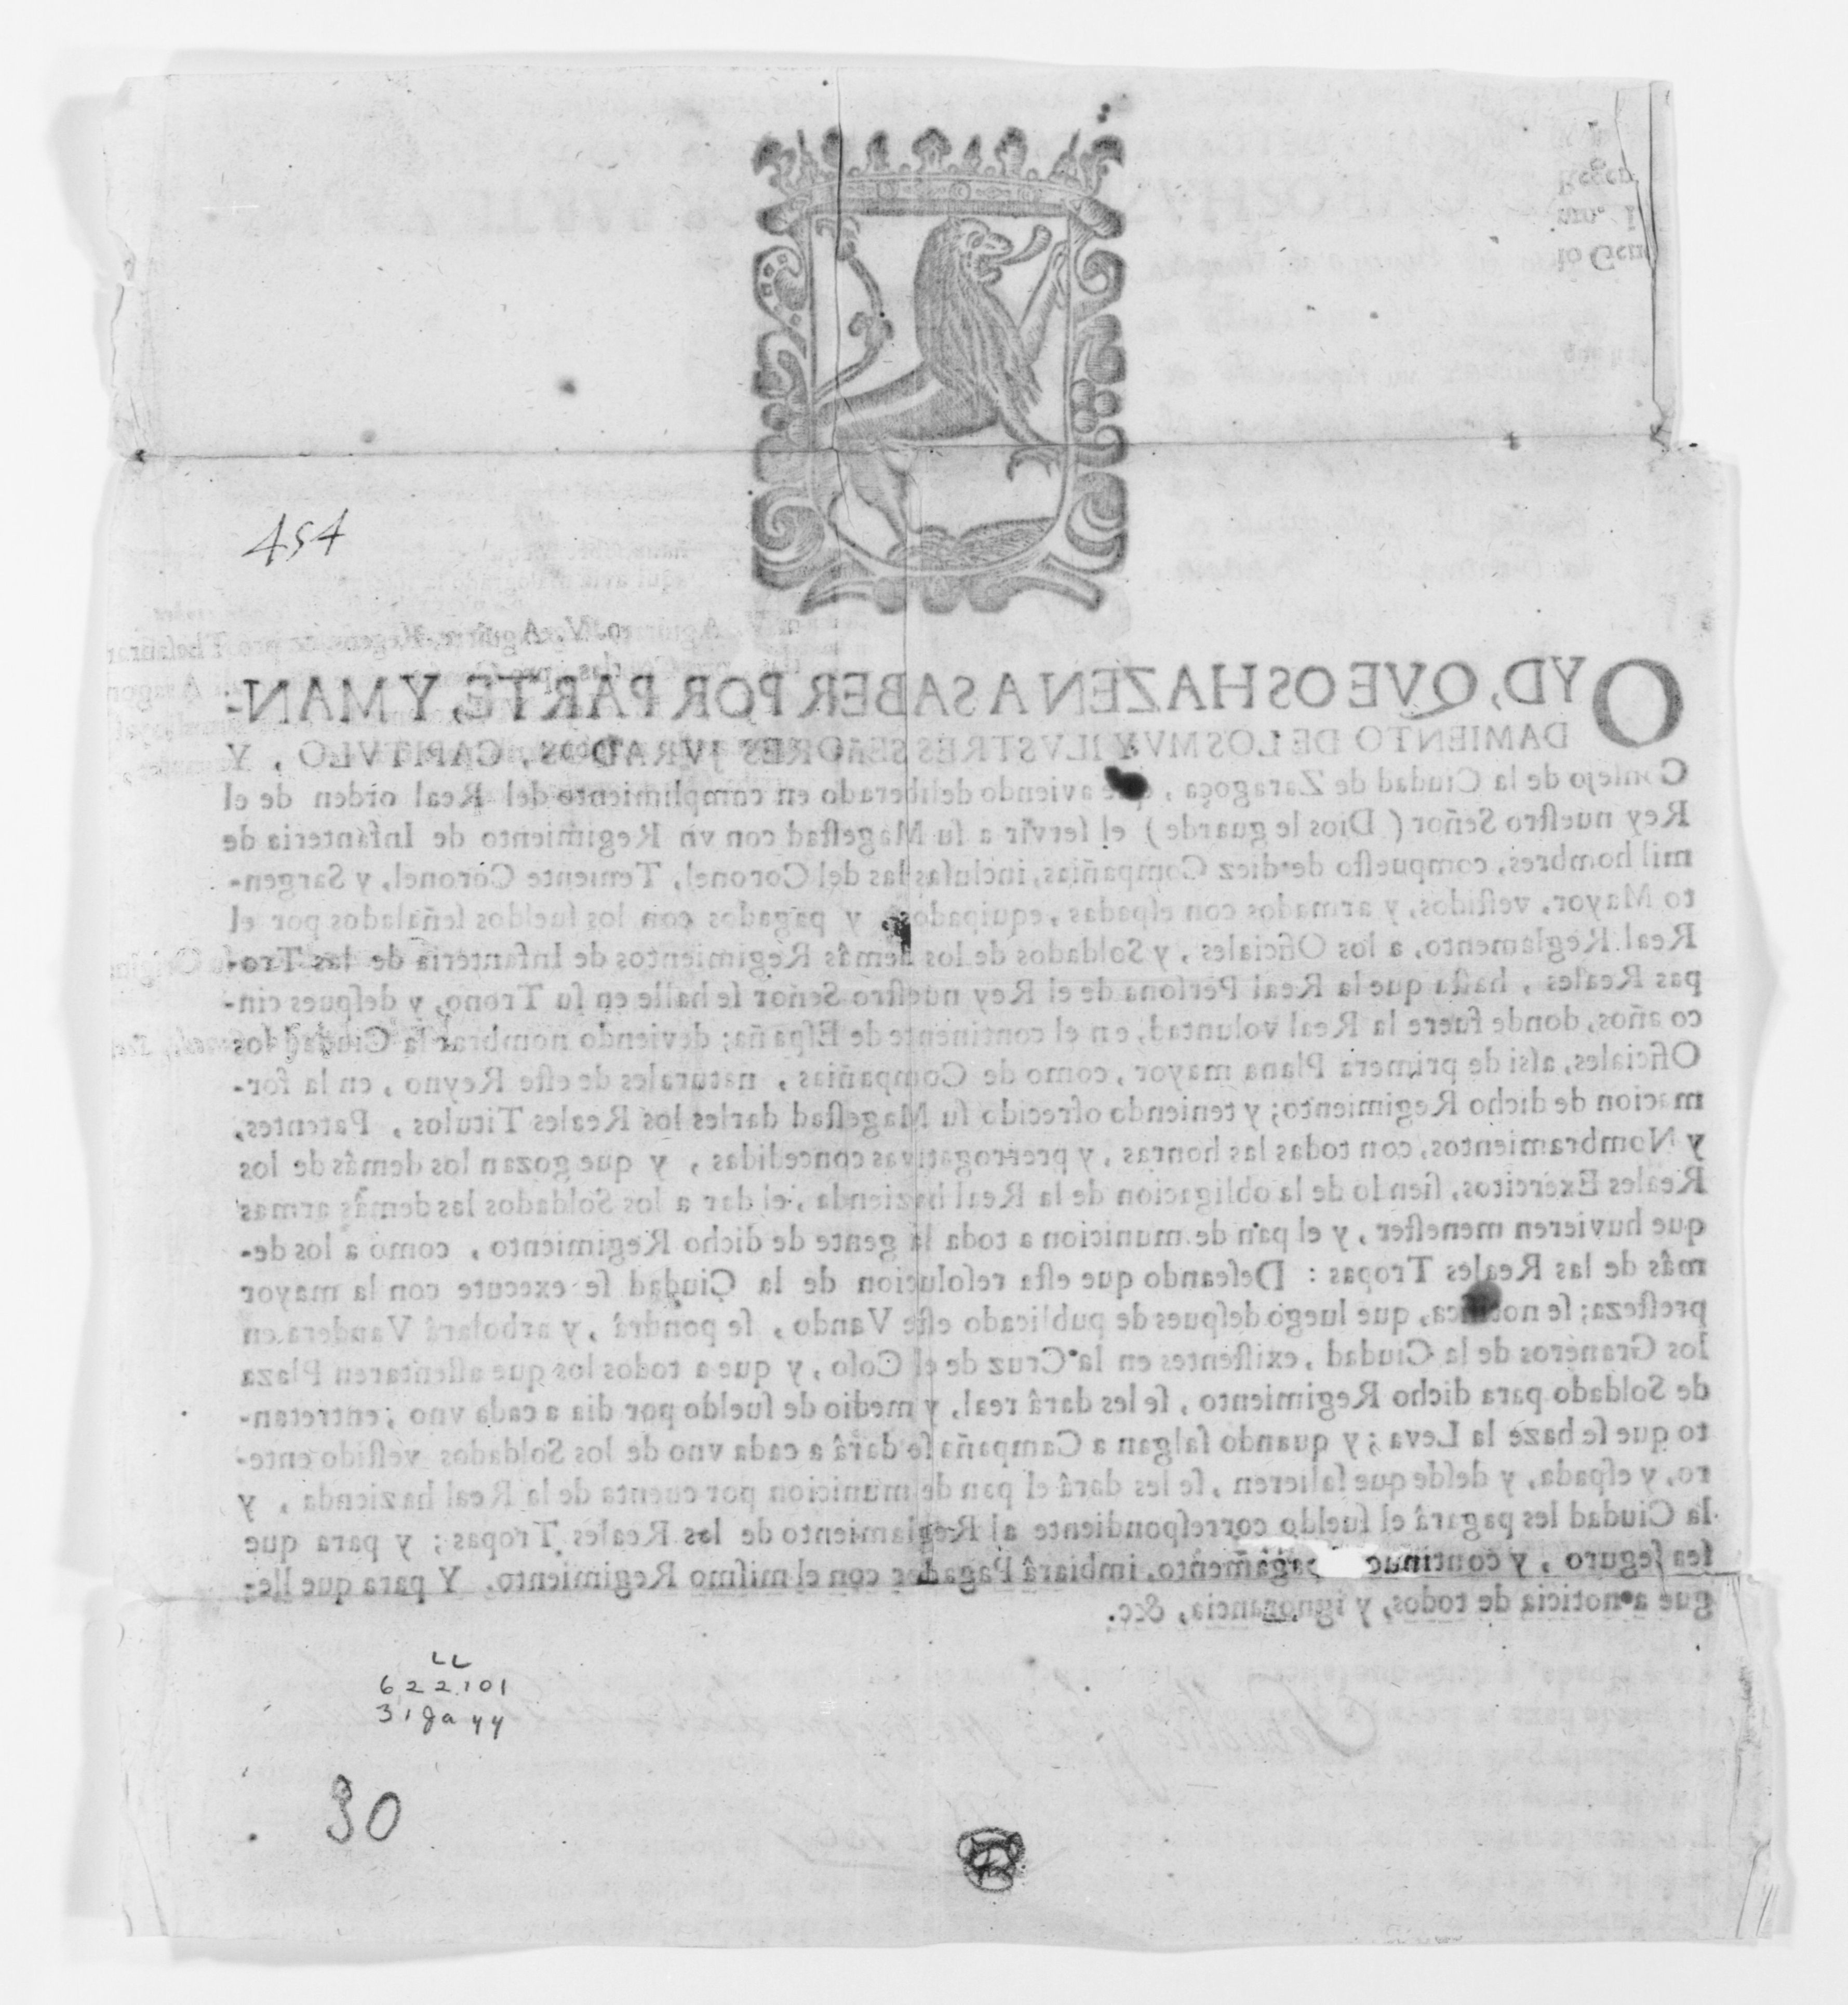 454
OYD, QVE OS HAZEN A SABER POR PARTE, Y MAN-
DAMIENTO DE LOS MVY ILVSTRES SEñORES JVRADOS, CAPITVLO, Y
Consejo de la Ciudad de Zaragoça, que aviendo deliberado en cumplimiento del Real orden de el
Rey nuestro Señor (Dios le guarde) el servir a su Magestad con vn Regimiento de Infanteria de
mil hombres, compuesto de diez Compañias, inclusas las del Coronel, Teniente Coronel, y Sargen-
to Mayor, vestidos, y armados con espadas, equipados, y pagados con los sueldos señalados por el
Real Reglamento, a los Oficiales, y Soldados de los demâs Regimientos de Infanteria de las Tro-
pas Reales, hasta que la Real Persona de el Rey nuestro Señor se halle en su Trono, y despues cin-
co años, donde fuere la Real voluntad, en el continente de España; deviendo nombrar la Ciudad los
Oficiales, assi de primera Plana mayor, como de Compañias, naturales de este Reyno, en la for-
macion de dicho Regimiento; y teniendo ofrecido su Magestad darles los Reales Titulos, Patentes,
y Nombramientos, con todas las honras, y prerrogativas concedidas, y que gozan los demâs de los
Reales Exercitos, siendo de la obligacion de la Real hazienda, el dar a los Soldados las demâs armas
que huvieren menester, y el pan de municion a toda la gente de dicho Regimiento, como a los de-
mâs de las Reales Tropas: Deseando que esta resolucion de la Ciudad se execute con la mayor
presteza; se notifica, que luego despues de publicado este Vando, se pondrâ, y arbolarâ Vandera en
los Graneros de la Ciudad, existentes en la Cruz de el Coso, y que a todos los que assentaren Plaza
de Soldado para dicho Regimiento, se les darâ real, y medio de sueldo por dia a cada vno; entretan-
to que se haze la Leva; y quando salgan a Campaña se darâ a cada vno de los Soldados vestido ente-
ro, y espada, y desde que salieren, se les darâ el pan de municion por cuenta de la Real hazienda, y
la Ciudad les pagarâ el sueldo correspondiente al Reglamiento de las Reales Tropas; y para que
sea seguro, y continuo pagamento, imbiarâ Pagador con el mismo Regimiento. Y para que lle-
gue a noticia de todos, y ignorancia, &c.
LL
622101
31ga44
30